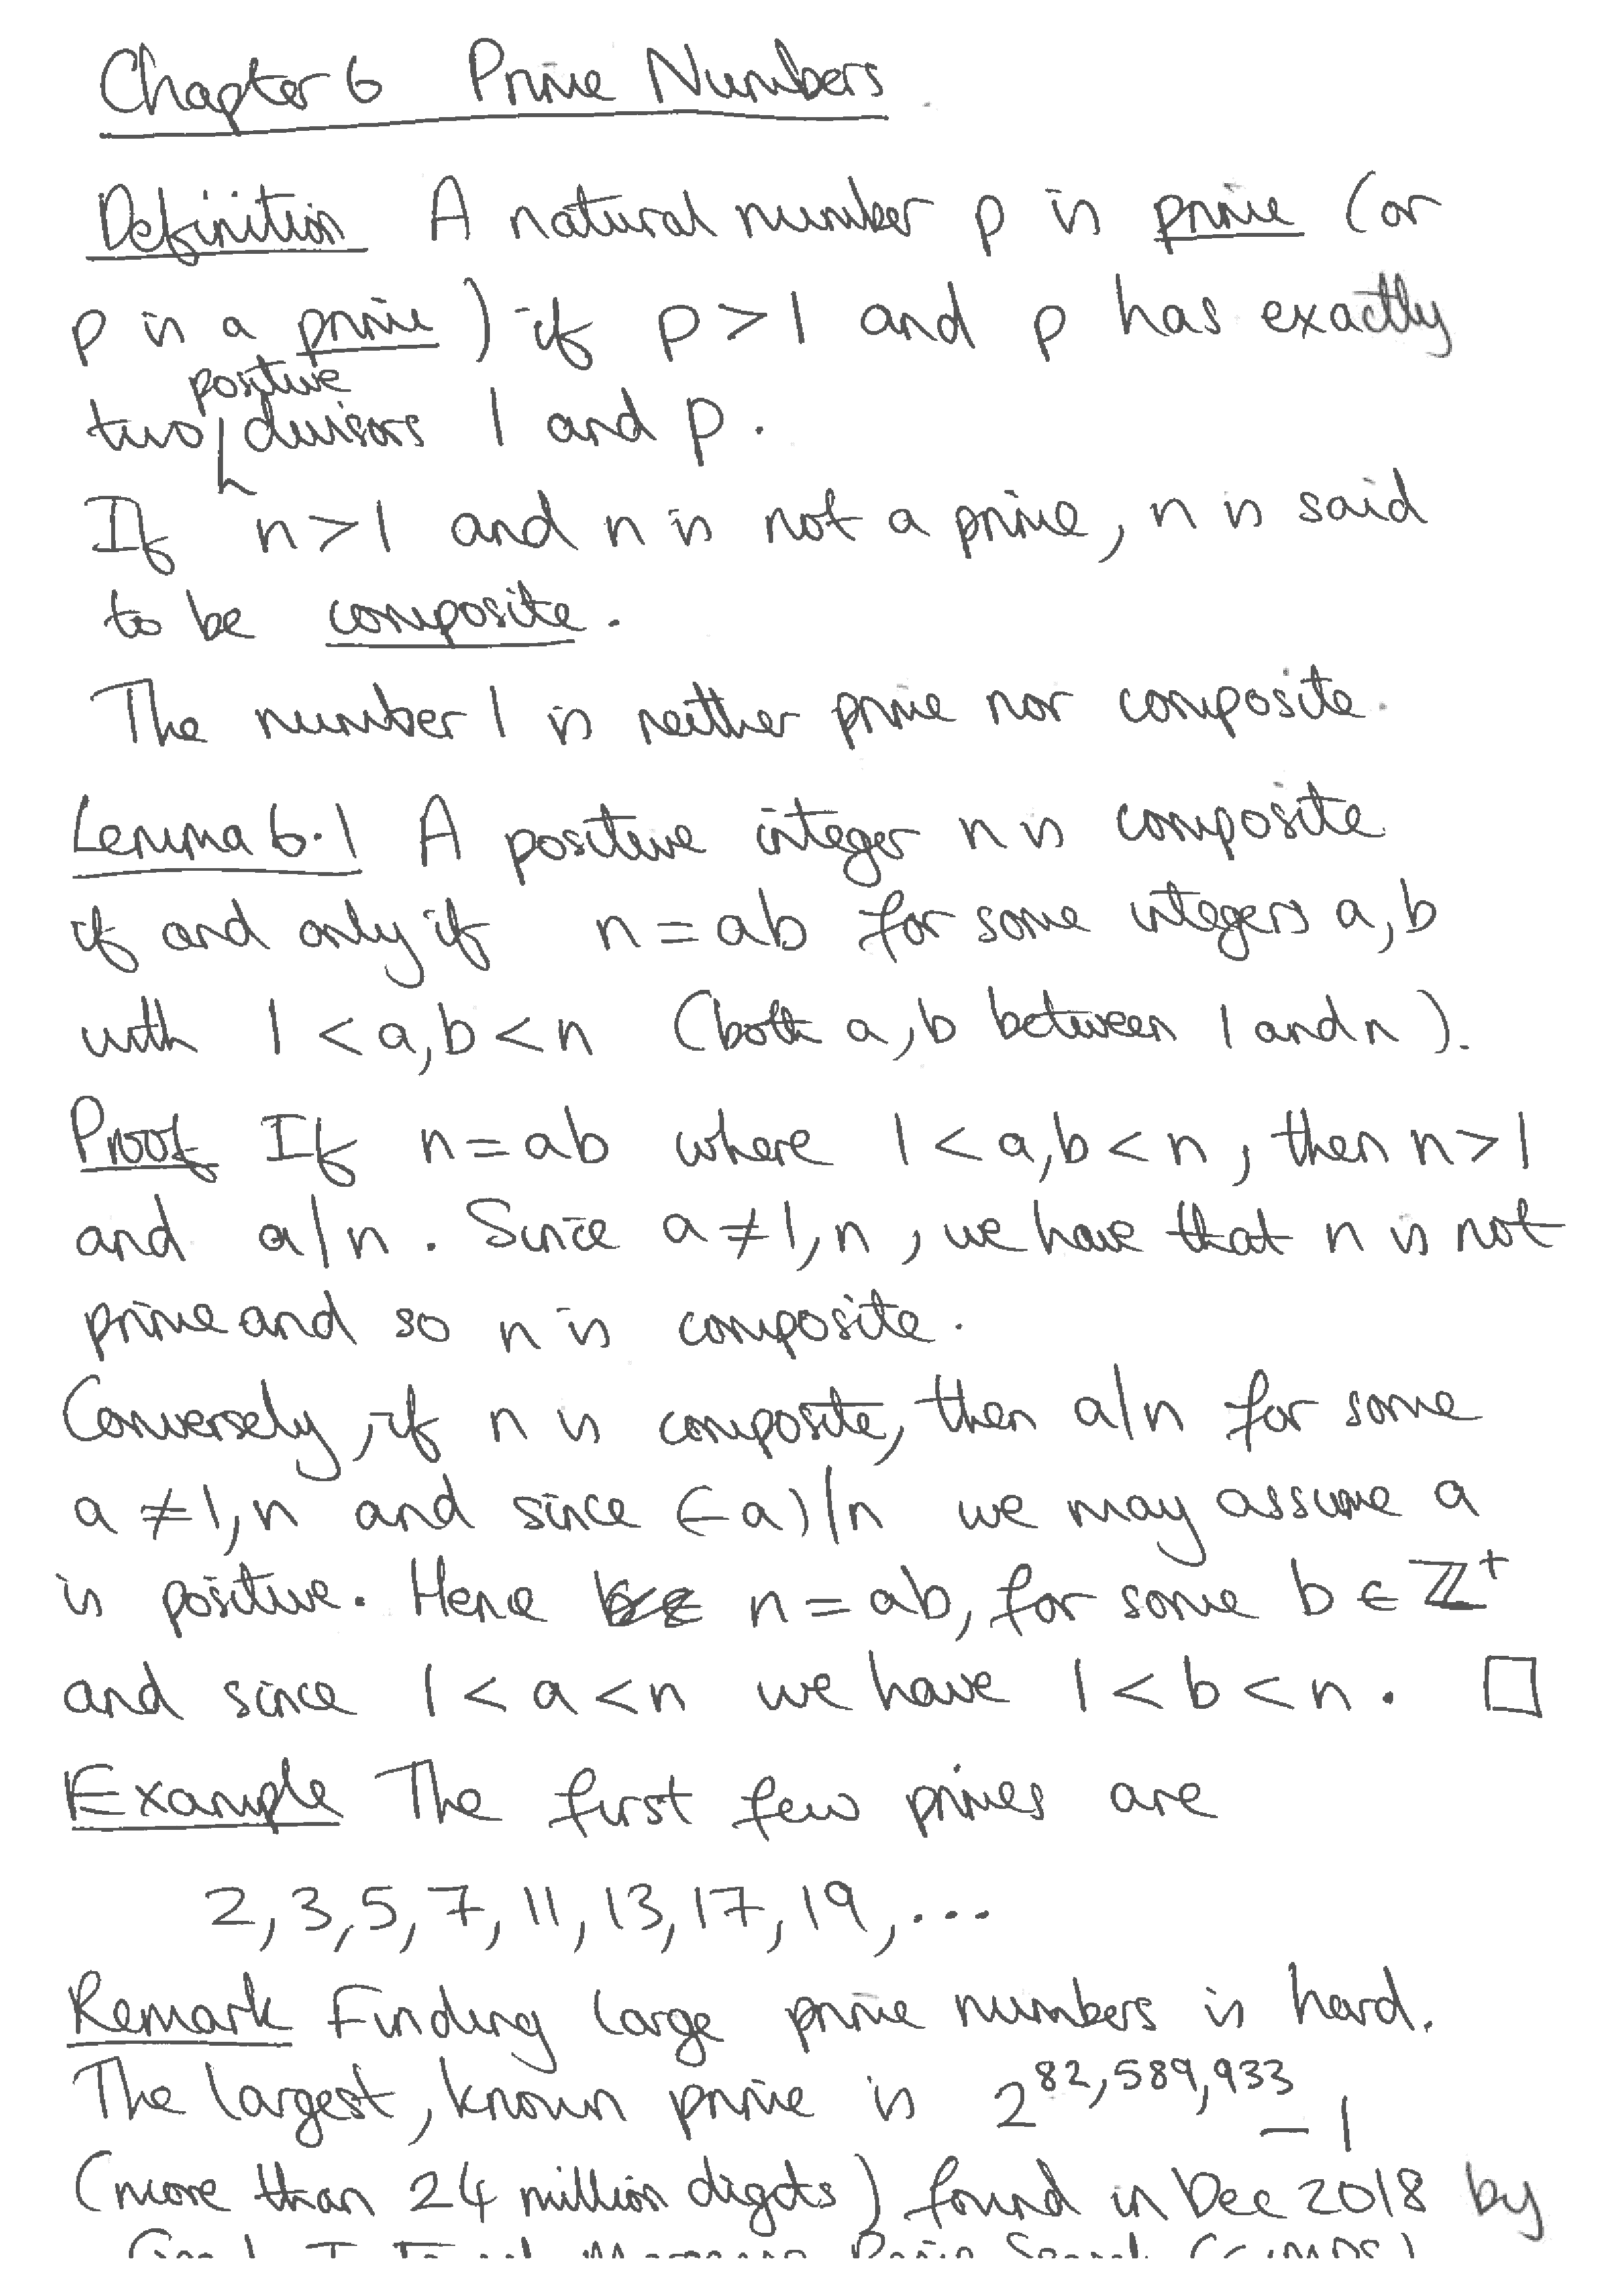 Chapter 6 Prime Numbers
Definition A natural number p is prime (or
p is a prime) if p > 1 and p has exactly
positive
two divisors 1 and p.
If n > 1 and n is not a prime, n is said
to be composite.
The number 1 is neither prime nor composite.
Lemma 6.1 A positive integer n is composite
if and only if n = ab for some integers a, b
with 1 < a, b < n (both a, b between 1 and n).
Proof If n = ab where 1 < a, b < n, then n > 1
and a|n. Since a ≠ 1, n, we have that n is not
prime and so n is composite.
Conversely, if n is composite, then a|n for some
a ≠ 1, n and since (-a)|n we may assume a
is positive. Hence n = ab, for some b ∈ ℤ⁺
and since 1 < a < n we have 1 < b < n. □
Example The first few primes are
2, 3, 5, 7, 11, 13, 17, 19, ...
Remark Finding large prime numbers is hard.
The largest, known prime is 2^82,589,933 - 1
(more than 24 million digits) found in Dec 2018 by
Mersenne Prime Search (GIMPS)